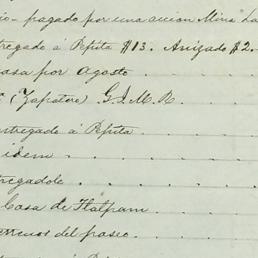 io - pagado por una accion Mina La
tregado á Pepita $13. Anizado $2.
casa por Agosto
(Zapatero) G.I.M.R.
ntregado á Pepita
idem
tregadole
Casa de Tlalpam
terrenos del paseo.
á Pepita